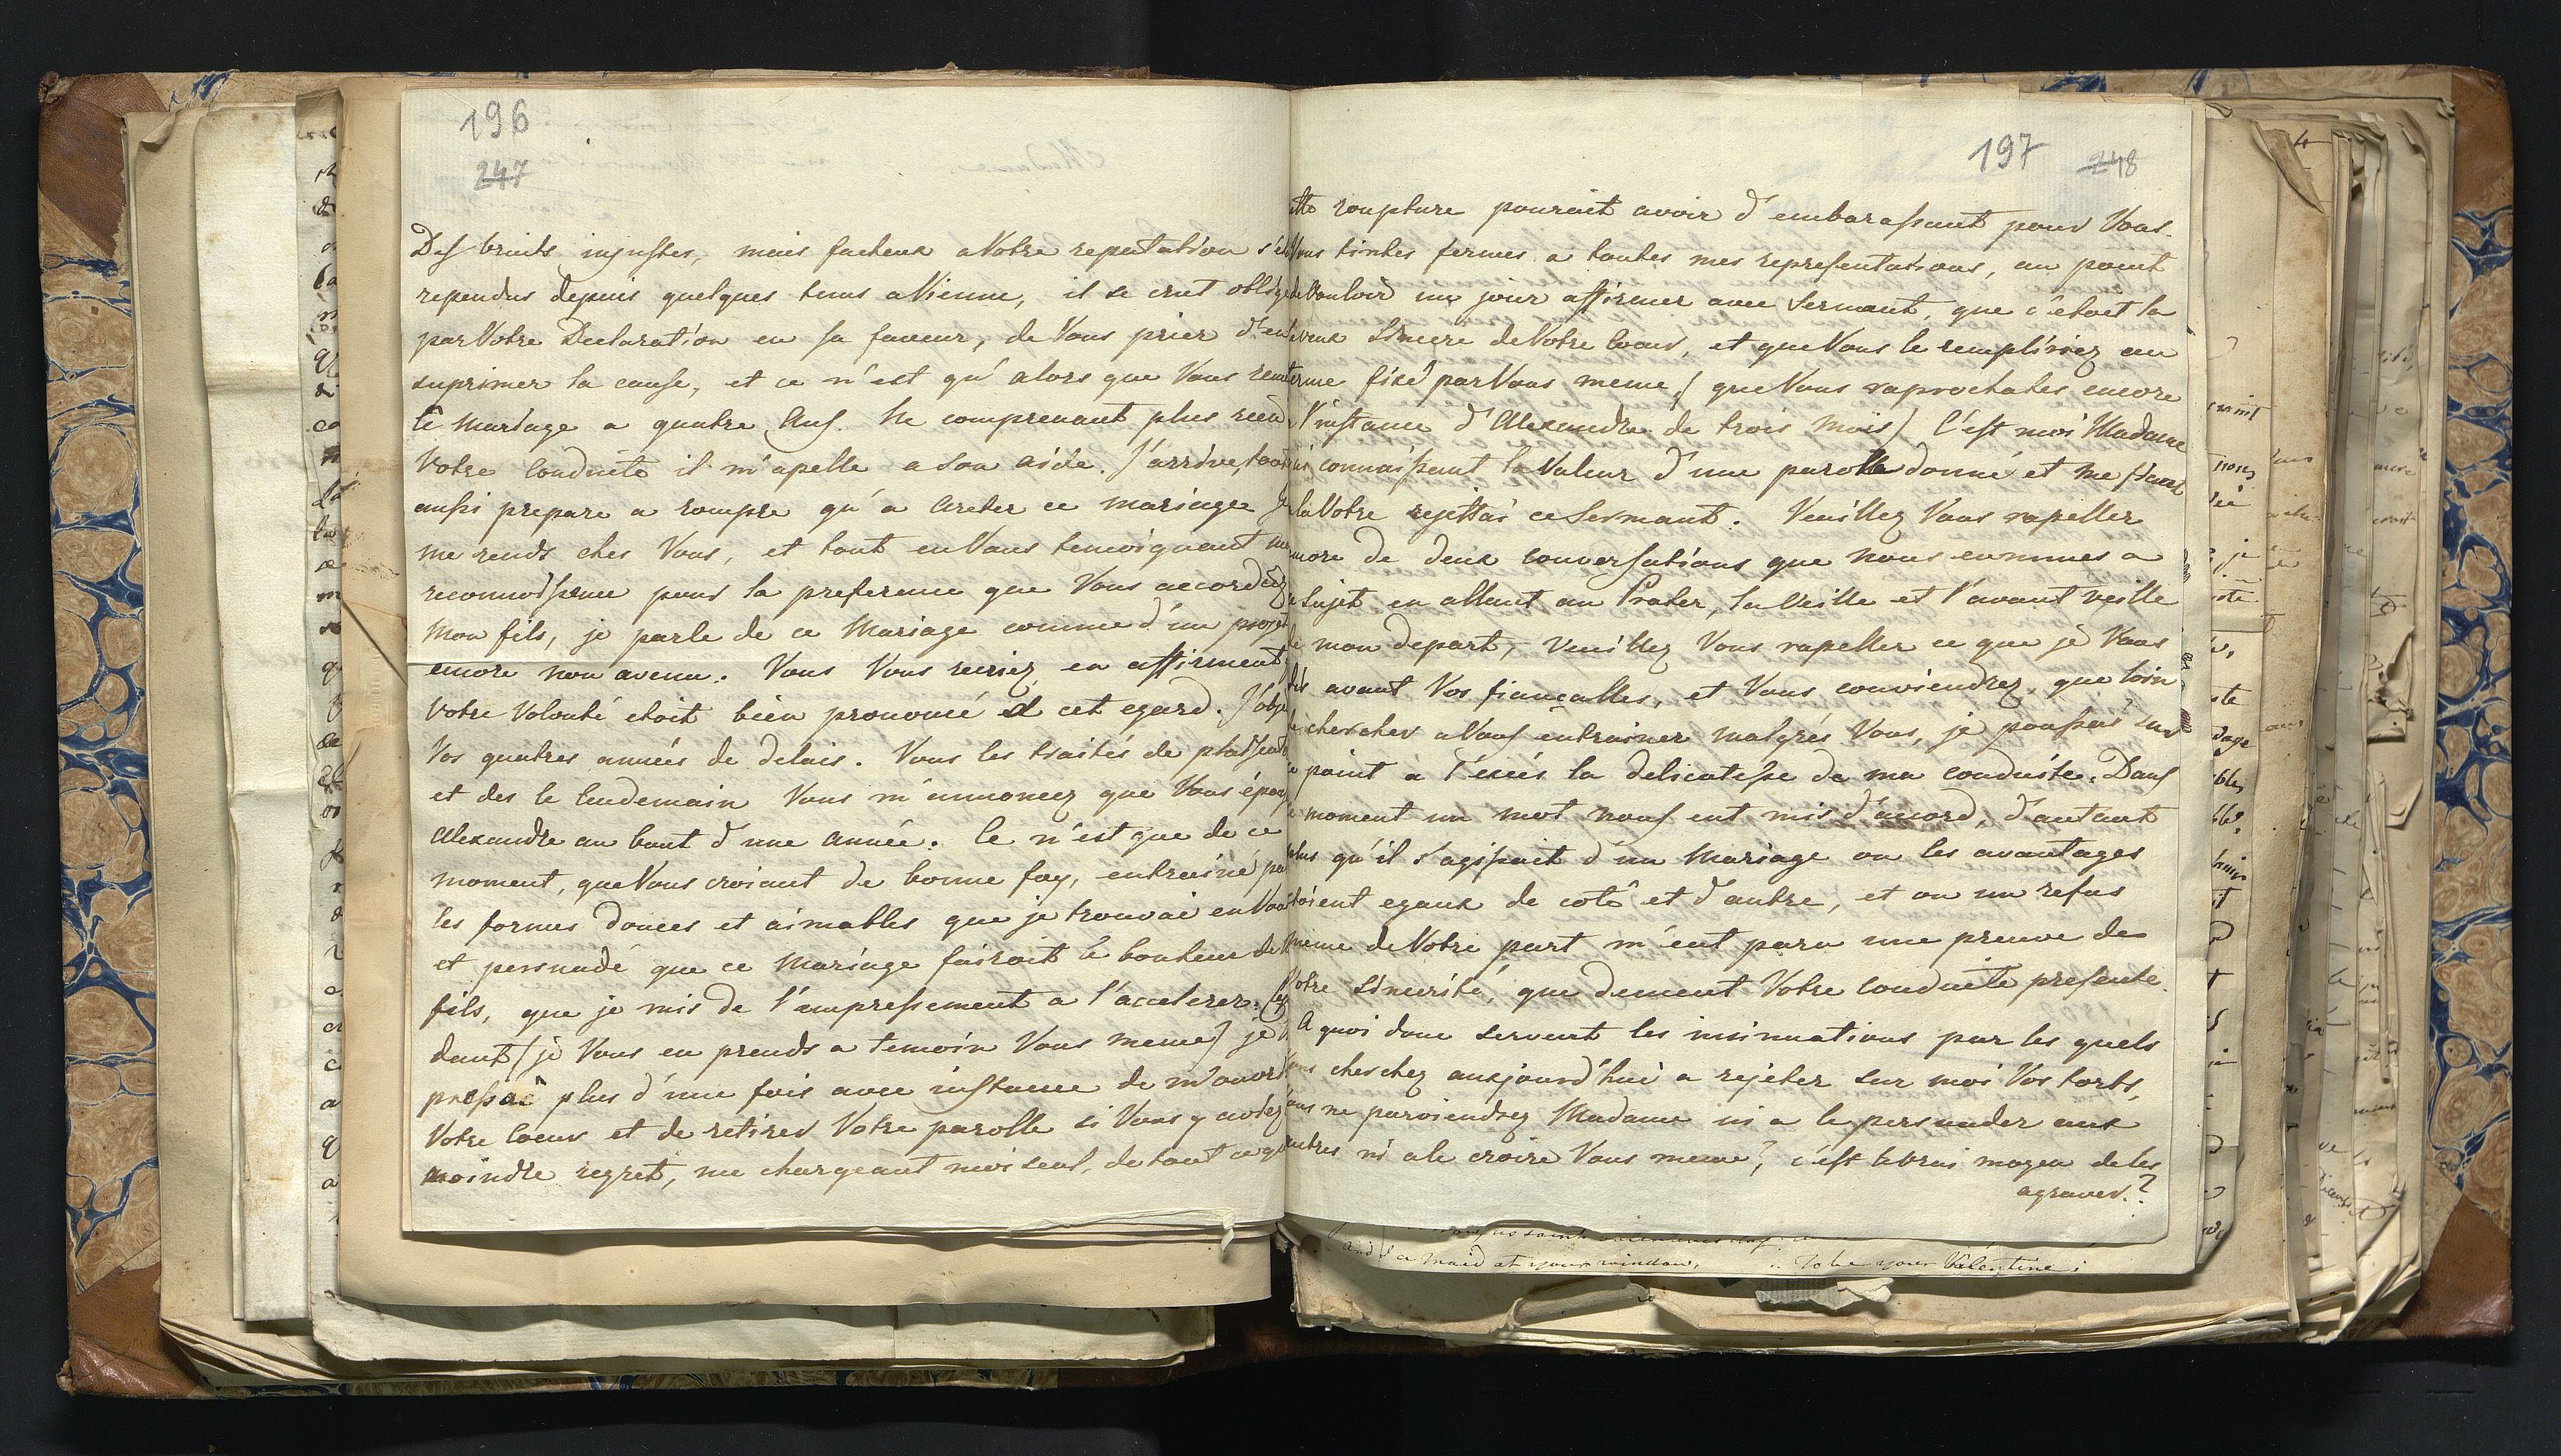 196
247
Des bruits injustes, mais facheux a Votre reputation s'et
rependus depuis quelques tems a Vienne, il se crut oblige
par Votre Declaration en sa faveur, de Vous prier d'en
suprimer la cause, et ce n'est qu'alors que Vous remit
le Mariage a quatre Ans. Ne comprenant plus rien
Votre Conduite il m'apelle a son aide. J'arrive, tout
aussi prepare a rompre qu'a areter ce mariage Je
me rends ches Vous, et tout en Vous temoignant ma
reconnoissence pour la preference que Vous accordiez
Mon fils, je parle de ce Mariage comme d'un projet
encore non avenu. Vous Vous recriez, en affirment
Votre Volonté etoit bien prononcé a cet egard. J'obje
Vos quatres annés de delais. Vous les traités de plaisente
et des le lendemain Vous m'annoncez que Vous épou
Alexandre au bout d'une Année. Ce n'est que de ce
moment, que Vous croiant de bonne foy, entrainé pa
les formes douces et aimables que je trouvai en Vous
et persuadé que ce Mariage fairoit le bonheur de
fils, que je mis de l'empressement a l'accelerer. Cep
dant (je Vous en prends a temoin Vous meme) je
pressai plus d'une fois avec instance de m'ouvrir
Votre Coeur et de retirer Votre parolle si Vous y aviez
moindre regret, me chargeant moi seul, de tout ce qu
197 248
ette roupture pourait avoir d'embarassant pour Vous.
Vous tintes fermes a toutes mes representations, au point
de Vouloir un jour affirmer avec Sermant, que c'etoit la
veux Sincere de Votre Coeur, et que Vous le rempliriez au
terme fixé par Vous meme, (que Vous raprochates encore
l'instance d'Alexandre de trois Mois) C'est moi Madame
ui connaissant la Valeur d'une parolle donné et me fiant
la Votre rejettai ce Sermant. Veuillez Vous rapeller
ncore de deux conversations que nous eummes a
e Sujet en allant au Prater, la Veille et l'avant veille
de mon depart, Veuillez Vous rapeller ce que je Vous
dis avant Vos fiançalles, et Vous conviendrez, que loin
de chercher a Vous entrainer malgrés Vous, je poussai sur
ce point a l'exces la delicatesse de ma conduite. Dans
ce moment un mot nous eut mis d'accord, d'autant
plus qu'il s'agissait d'un Mariage ou les avantages
etoient egaux de coté et d'autre, et ou un refus
meme de Votre part m'eut paru une preuve de
Votre Sincerité, que dement Votre Conduite presente.
A quoi donc servent les insinuations par les quels
Vous cherchez auxjourd'hui a rejeter sur moi Vos torts,
Vous ne parviendrez Madame ni a le persuader aux
autres ni a le croire Vous meme, c'est le vrai moyen de les
agraver.
and I a maid at your window, To be your Valentine;